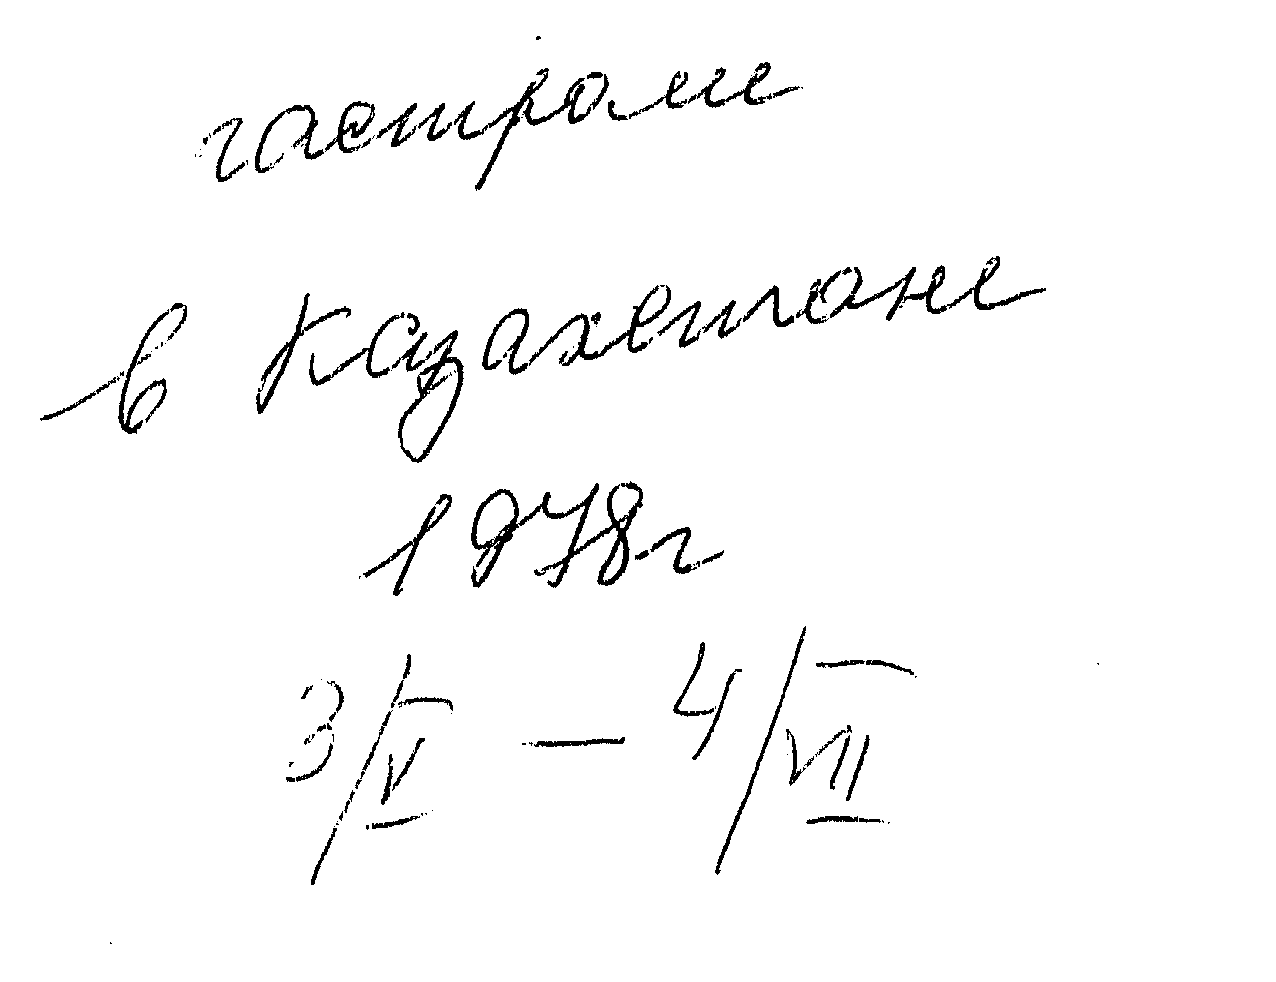 гастроли
в Казахстане
1978г
3/V — 4/VII